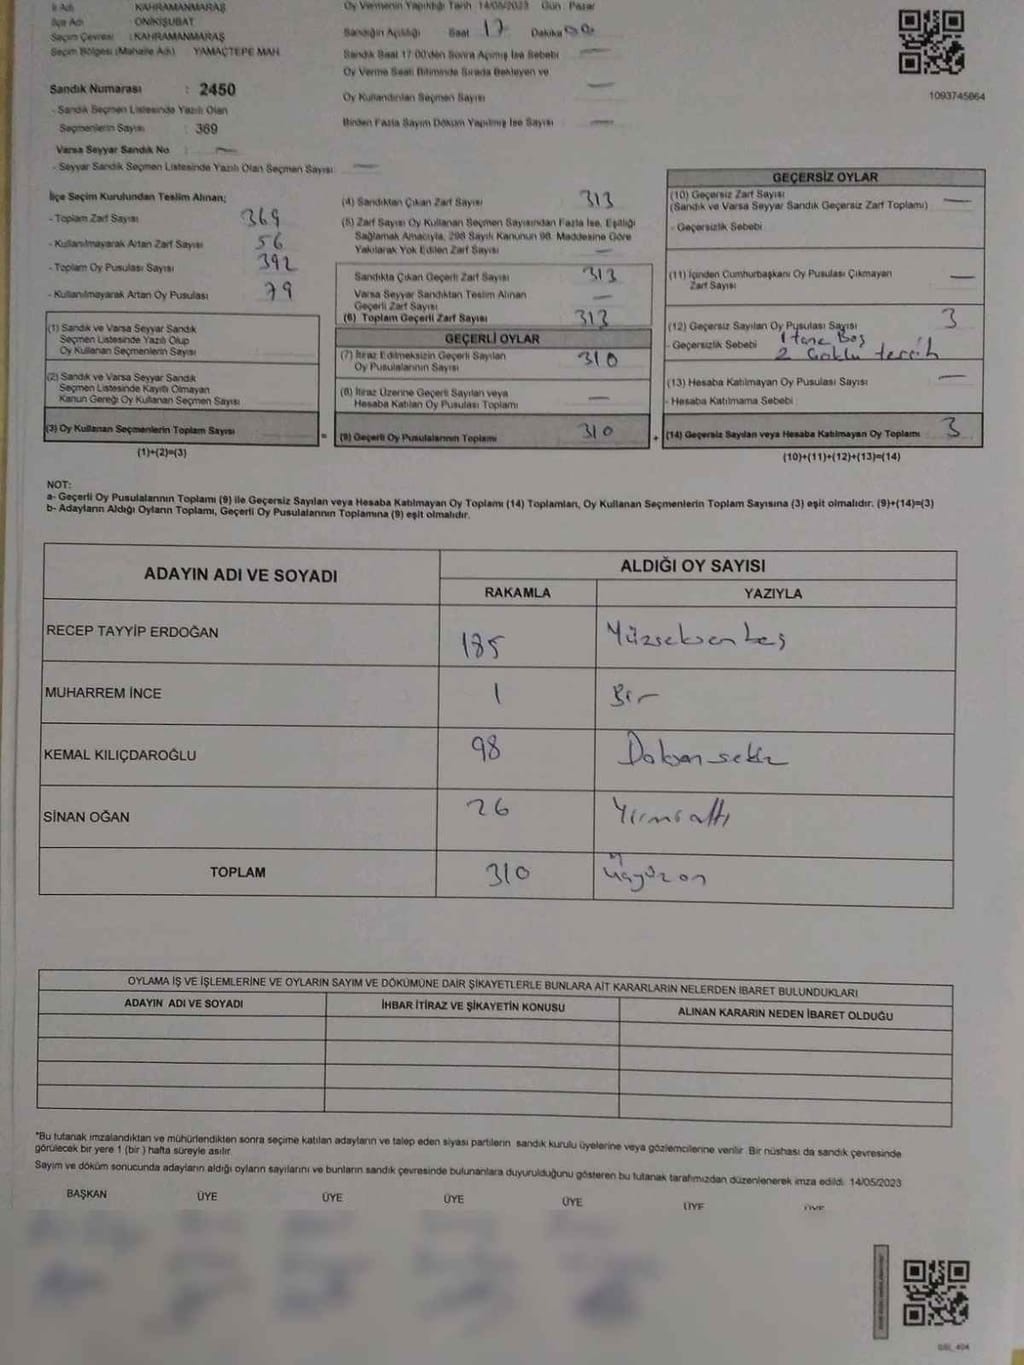 İl Adı : KAHRAMANMARAŞ
İlçe Adı : ONİKİŞUBAT
Seçim Çevresi : KAHRAMANMARAŞ
Seçim Bölgesi (Mahalle Adı) YAMAÇTEPE MAH
Sandık Numarası : 2450
- Sandık Seçmen Listesinde Yazılı Olan
Seçmenlerin Sayısı : 369
Varsa Seyyar Sandık No : —
- Seyyar Sandık Seçmen Listesinde Yazılı Olan Seçmen Sayısı : —
Oy Vermenin Yapıldığı Tarih 14/05/2023 Gün : Pazar
Sandığın Açıldığı Saat 17 Dakika 00
Sandık Saat 17:00'den Sonra Açılmış İse Sebebi —
Oy Verme Saati Bitiminde Sırada Bekleyen ve
Oy Kullandırılan Seçmen Sayısı —
Birden Fazla Sayım Döküm Yapılmış İse Sayısı —
1093745664
İlçe Seçim Kurulundan Teslim Alınan;
- Toplam Zarf Sayısı 369
- Kullanılmayarak Artan Zarf Sayısı 56
- Toplam Oy Pusulası Sayısı 392
- Kullanılmayarak Artan Oy Pusulası 79
(1) Sandık ve Varsa Seyyar Sandık
Seçmen Listesinde Yazılı Olup
Oy Kullanan Seçmenlerin Sayısı
(2) Sandık ve Varsa Seyyar Sandık
Seçmen Listesinde Kayıtlı Olmayan
Kanun Gereği Oy Kullanan Seçmen Sayısı
(3) Oy Kullanan Seçmenlerin Toplam Sayısı
(1)+(2)=(3)
(4) Sandıktan Çıkan Zarf Sayısı 313
(5) Zarf Sayısı Oy Kullanan Seçmen Sayısından Fazla İse, Eşitliği
Sağlamak Amacıyla, 298 Sayılı Kanunun 98. Maddesine Göre
Yakılarak Yok Edilen Zarf Sayısı —
Sandıkta Çıkan Geçerli Zarf Sayısı 313
Varsa Seyyar Sandıktan Teslim Alınan
Geçerli Zarf Sayısı —
(6) Toplam Geçerli Zarf Sayısı 313
GEÇERLİ OYLAR
(7) İtiraz Edilmeksizin Geçerli Sayılan
Oy Pusulalarının Sayısı 310
(8) İtiraz Üzerine Geçerli Sayılan veya
Hesaba Katılan Oy Pusulası Toplamı —
= (9) Geçerli Oy Pusulalarının Toplamı 310 +
GEÇERSİZ OYLAR
(10) Geçersiz Zarf Sayısı
(Sandık ve Varsa Seyyar Sandık Geçersiz Zarf Toplamı) —
- Geçersizlik Sebebi
(11) İçinden Cumhurbaşkanı Oy Pusulası Çıkmayan
Zarf Sayısı —
(12) Geçersiz Sayılan Oy Pusulası Sayısı 3
- Geçersizlik Sebebi 1 tane Boş
2 Çoklu tercih
(13) Hesaba Katılmayan Oy Pusulası Sayısı —
- Hesaba Katılmama Sebebi
(14) Geçersiz Sayılan veya Hesaba Katılmayan Oy Toplamı 3
(10)+(11)+(12)+(13)=(14)
NOT:
a- Geçerli Oy Pusulalarının Toplamı (9) ile Geçersiz Sayılan veya Hesaba Katılmayan Oy Toplamı (14) Toplamları, Oy Kullanan Seçmenlerin Toplam Sayısına (3) eşit olmalıdır. (9)+(14)=(3)
b- Adayların Aldığı Oyların Toplamı, Geçerli Oy Pusulalarının Toplamına (9) eşit olmalıdır.
ADAYIN ADI VE SOYADI ALDIĞI OY SAYISI
RAKAMLA YAZIYLA
RECEP TAYYİP ERDOĞAN 185 Yüzseksenbeş
MUHARREM İNCE 1 Bir
KEMAL KILIÇDAROĞLU 98 Doksansekiz
SİNAN OĞAN 26 Yirmialtı
TOPLAM 310 üçyüzon
OYLAMA İŞ VE İŞLEMLERİNE VE OYLARIN SAYIM VE DÖKÜMÜNE DAİR ŞİKAYETLERLE BUNLARA AİT KARARLARIN NELERDEN İBARET BULUNDUKLARI
ADAYIN ADI VE SOYADI İHBAR İTİRAZ VE ŞİKAYETİN KONUSU ALINAN KARARIN NEDEN İBARET OLDUĞU
*Bu tutanak imzalandıktan ve mühürlendikten sonra seçime katılan adayların ve talep eden siyasi partilerin sandık kurulu üyelerine veya gözlemcilerine verilir. Bir nüshası da sandık çevresinde
görülecek bir yere 1 (bir) hafta süreyle asılır.
Sayım ve döküm sonucunda adayların aldığı oyların sayılarını ve bunların sandık çevresinde bulunanlara duyurulduğunu gösteren bu tutanak tarafımızdan düzenlenerek imza edildi. 14/05/2023
BAŞKAN ÜYE ÜYE ÜYE ÜYE ÜYE ÜYE